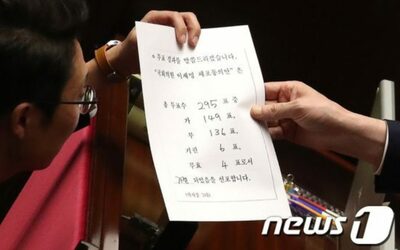 ◦ 투표 결과를 말씀드리겠습니다.
"국회의원 이재명 체포동의안" 은
총 투표수 295 표 중
가 149 표,
부 136 표,
기권 6 표,
무효 4 표로서
되었음을 선포합니다.
news 1